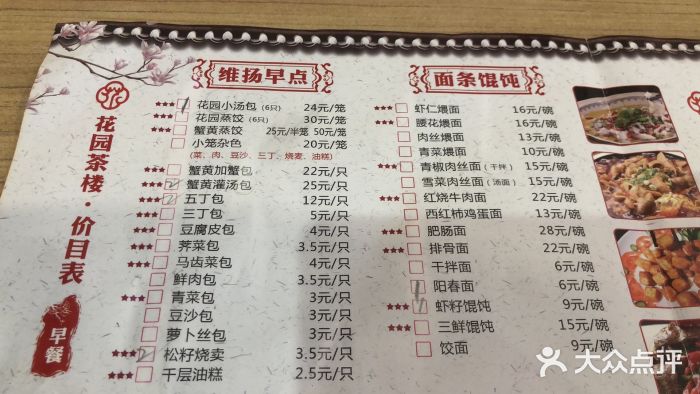 花园茶楼·价目表
早餐
维扬早点
花园小汤包（6只） 24元/笼
花园蒸饺（6只） 30元/笼
蟹黄蒸饺 25元/半笼 50元/笼
小笼杂色 20元/笼
（菜、肉、豆沙、三丁、烧麦、油糕）
蟹黄加蟹包 22元/只
蟹黄灌汤包 25元/只
五丁包 12元/只
三丁包 5元/只
豆腐皮包 4元/只
荠菜包 3.5元/只
马齿菜包 4元/只
鲜肉包 3.5元/只
青菜包 3元/只
豆沙包 3元/只
萝卜丝包 3元/只
松籽烧卖 3.5元/只
千层油糕 2.5元/只
面条馄饨
虾仁煨面 16元/碗
腰花煨面 16元/碗
肉丝煨面 13元/碗
青菜煨面 10元/碗
青椒肉丝面（干拌） 15元/碗
雪菜肉丝面（汤面） 15元/碗
红烧牛肉面 22元/碗
西红柿鸡蛋面 13元/碗
肥肠面 28元/碗
排骨面 22元/碗
干拌面 6元/碗
阳春面 6元/碗
虾籽馄饨 9元/碗
三鲜馄饨 15元/碗
饺面 9元/碗
大众点评